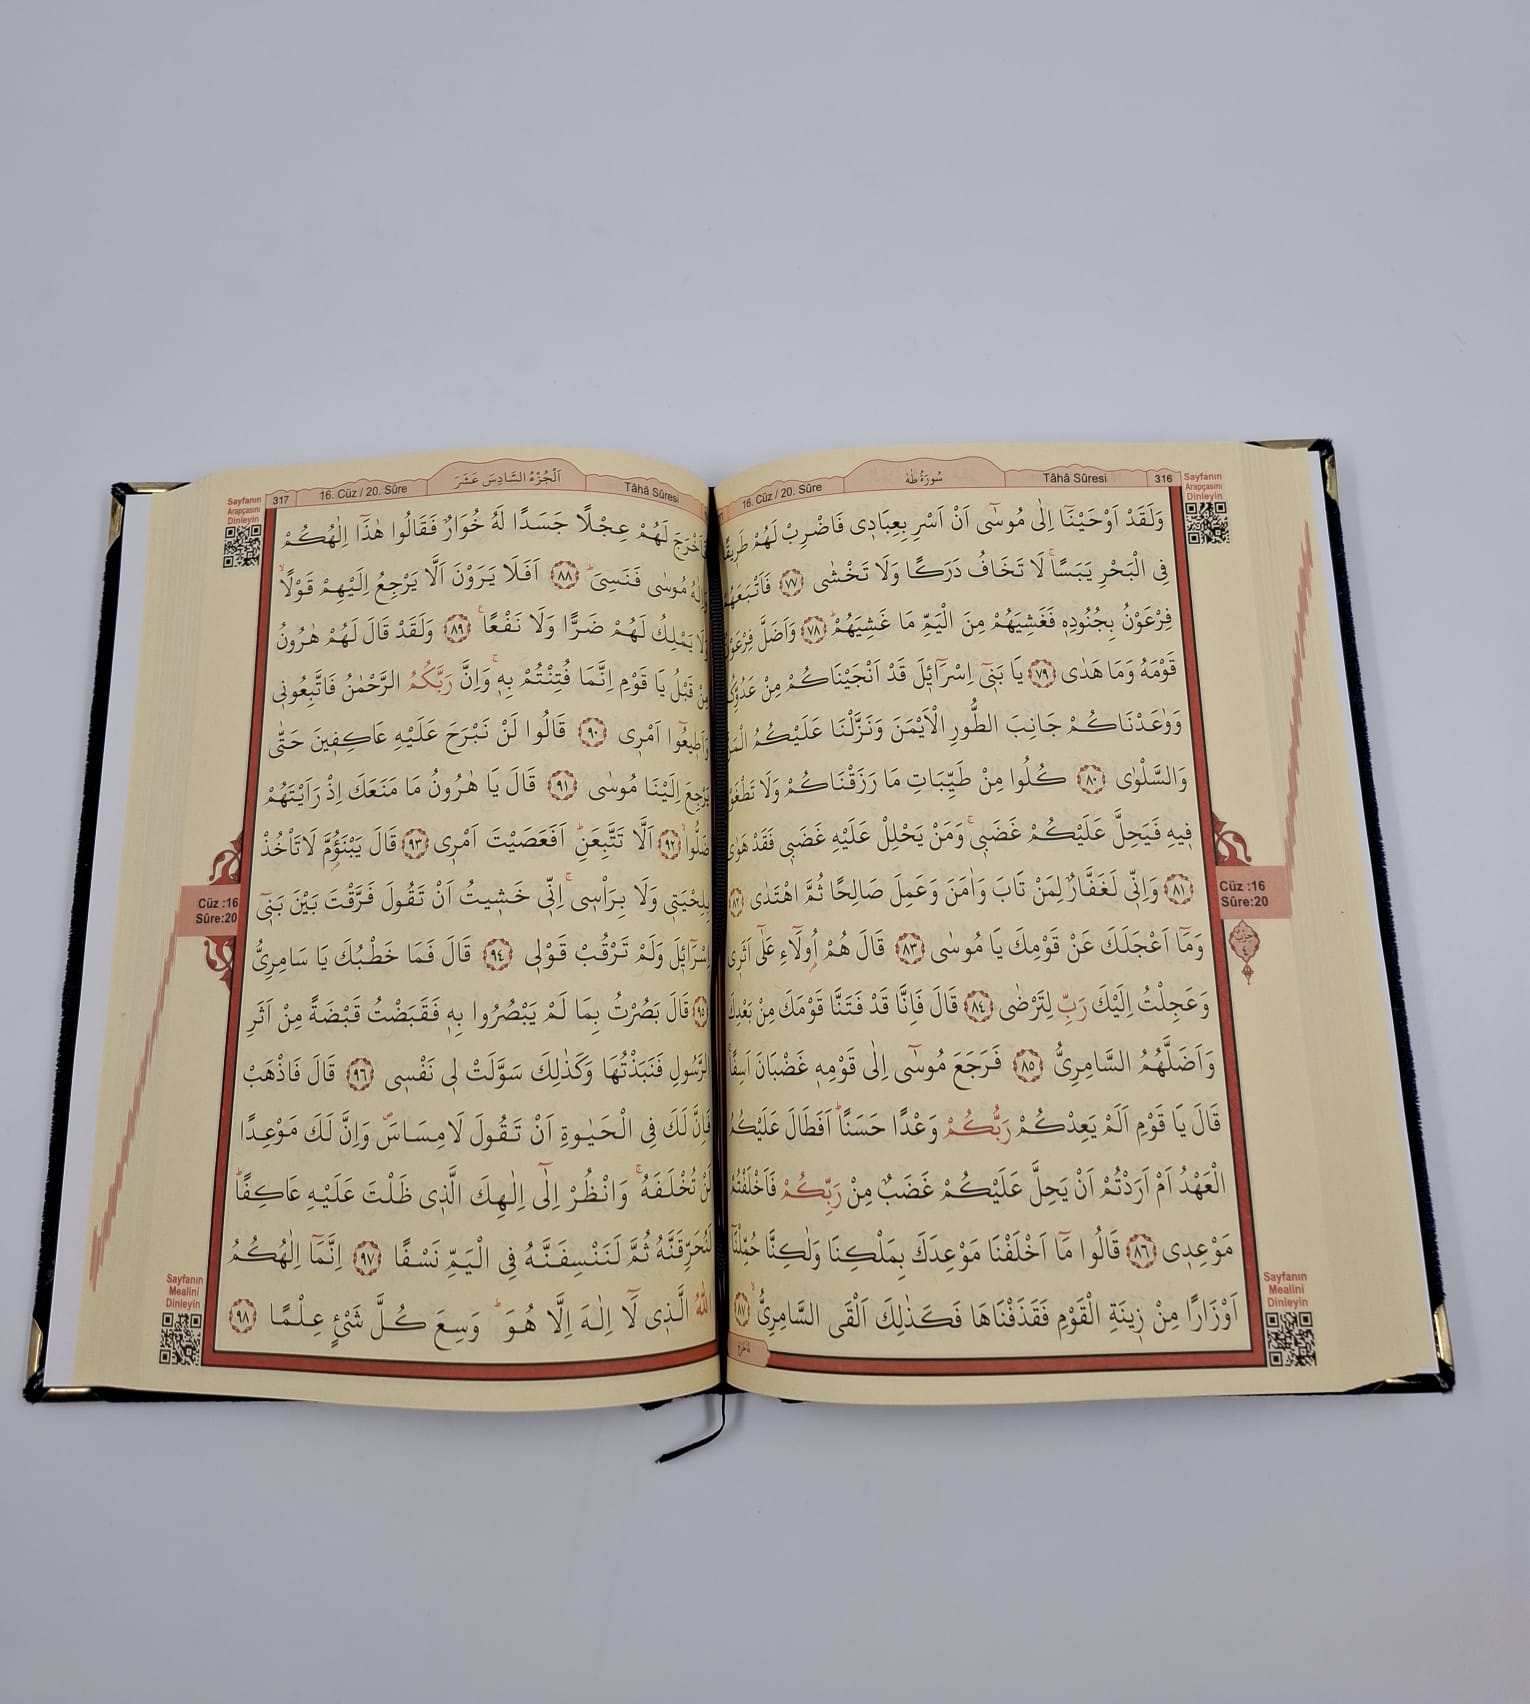 سُورَةُ طٰهٰ
Tâhâ Sûresi
316
16. Cüz / 20. Sûre
Sayfanın
Arapçasını
Dinleyin
وَلَقَدْ اَوْحَيْنَٓا اِلٰى مُوسٰٓى اَنْ اَسْرِ بِعِبَادٖى فَاضْرِبْ لَهُمْ طَرٖيقًا
فِى الْبَحْرِ يَبَسًاۚ لَا تَخَافُ دَرَكًا وَلَا تَخْشٰى ﴿٧٧﴾ فَاَتْبَعَهُمْ
فِرْعَوْنُ بِجُنُودِهٖ فَغَشِيَهُمْ مِنَ الْيَمِّ مَا غَشِيَهُمْؕ ﴿٧٨﴾ وَاَضَلَّ فِرْعَوْنُ
قَوْمَهُ وَمَا هَدٰى ﴿٧٩﴾ يَا بَنٖٓى اِسْرَٓائٖلَ قَدْ اَنْجَيْنَاكُمْ مِنْ عَدُوِّكُمْ
وَوٰعَدْنَاكُمْ جَانِبَ الطُّورِ الْاَيْمَنَ وَنَزَّلْنَا عَلَيْكُمُ الْمَنَّ
وَالسَّلْوٰى ﴿٨٠﴾ كُلُوا مِنْ طَيِّبَاتِ مَا رَزَقْنَاكُمْ وَلَا تَطْغَوْا
فٖيهِ فَيَحِلَّ عَلَيْكُمْ غَضَبٖىۚ وَمَنْ يَحْلِلْ عَلَيْهِ غَضَبٖى فَقَدْ هَوٰى
﴿٨١﴾ وَاِنّٖى لَغَفَّارٌ لِمَنْ تَابَ وَاٰمَنَ وَعَمِلَ صَالِحًا ثُمَّ اهْتَدٰى ﴿٨٢﴾
وَمَٓا اَعْجَلَكَ عَنْ قَوْمِكَ يَا مُوسٰى ﴿٨٣﴾ قَالَ هُمْ اُولَٓاءِ عَلٰٓى اَثَرٖى
وَعَجِلْتُ اِلَيْكَ رَبِّ لِتَرْضٰى ﴿٨٤﴾ قَالَ فَاِنَّا قَدْ فَتَنَّا قَوْمَكَ مِنْ بَعْدِكَ
وَاَضَلَّهُمُ السَّامِرِىُّ ﴿٨٥﴾ فَرَجَعَ مُوسٰٓى اِلٰى قَوْمِهٖ غَضْبَانَ اَسِفًاۚ
قَالَ يَا قَوْمِ اَلَمْ يَعِدْكُمْ رَبُّكُمْ وَعْدًا حَسَنًاؕ اَفَطَالَ عَلَيْكُمُ
الْعَهْدُ اَمْ اَرَدْتُمْ اَنْ يَحِلَّ عَلَيْكُمْ غَضَبٌ مِنْ رَبِّكُمْ فَاَخْلَفْتُمْ
مَوْعِدٖى ﴿٨٦﴾ قَالُوا مَٓا اَخْلَفْنَا مَوْعِدَكَ بِمَلْكِنَا وَلٰكِنَّا حُمِّلْنَٓا
اَوْزَارًا مِنْ زٖينَةِ الْقَوْمِ فَقَذَفْنَاهَا فَكَذٰلِكَ اَلْقَى السَّامِرِىُّۙ ﴿٨٧﴾
Cüz :16
Sûre:20
حزب
٤
Sayfanın
Mealini
Dinleyin
317
16. Cüz / 20. Sûre
اَلْجُزْءُ السَّادِسَ عَشَرَ
Tâhâ Sûresi
Sayfanın
Arapçasını
Dinleyin
فَاَخْرَجَ لَهُمْ عِجْلًا جَسَدًا لَهُ خُوَارٌ فَقَالُوا هٰذَٓا اِلٰهُكُمْ
وَاِلٰهُ مُوسٰى فَنَسِىَؕ ﴿٨٨﴾ اَفَلَا يَرَوْنَ اَلَّا يَرْجِعُ اِلَيْهِمْ قَوْلًاۙ
وَلَا يَمْلِكُ لَهُمْ ضَرًّا وَلَا نَفْعًاۚ ﴿٨٩﴾ وَلَقَدْ قَالَ لَهُمْ هٰرُونُ
مِنْ قَبْلُ يَا قَوْمِ اِنَّمَا فُتِنْتُمْ بِهٖۚ وَاِنَّ رَبَّكُمُ الرَّحْمٰنُ فَاتَّبِعُونٖى
وَاَطٖيعُٓوا اَمْرٖى ﴿٩٠﴾ قَالُوا لَنْ نَبْرَحَ عَلَيْهِ عَاكِفٖينَ حَتّٰى
يَرْجِعَ اِلَيْنَا مُوسٰى ﴿٩١﴾ قَالَ يَا هٰرُونُ مَا مَنَعَكَ اِذْ رَاَيْتَهُمْ
ضَلُّواۙ ﴿٩٢﴾ اَلَّا تَتَّبِعَنِؕ اَفَعَصَيْتَ اَمْرٖى ﴿٩٣﴾ قَالَ يَبْنَؤُمَّ لَا تَاْخُذْ
بِلِحْيَتٖى وَلَا بِرَاْسٖىۚ اِنّٖى خَشٖيتُ اَنْ تَقُولَ فَرَّقْتَ بَيْنَ بَنٖٓى
اِسْرَٓائٖلَ وَلَمْ تَرْقُبْ قَوْلٖى ﴿٩٤﴾ قَالَ فَمَا خَطْبُكَ يَا سَامِرِىُّ
﴿٩٥﴾ قَالَ بَصُرْتُ بِمَا لَمْ يَبْصُرُوا بِهٖ فَقَبَضْتُ قَبْضَةً مِنْ اَثَرِ
الرَّسُولِ فَنَبَذْتُهَا وَكَذٰلِكَ سَوَّلَتْ لٖى نَفْسٖى ﴿٩٦﴾ قَالَ فَاذْهَبْ
فَاِنَّ لَكَ فِى الْحَيٰوةِ اَنْ تَقُولَ لَا مِسَاسَࣕ وَاِنَّ لَكَ مَوْعِدًا
لَنْ تُخْلَفَهُۚ وَانْظُرْ اِلٰٓى اِلٰهِكَ الَّذٖى ظَلْتَ عَلَيْهِ عَاكِفًاؕ
لَنُحَرِّقَنَّهُ ثُمَّ لَنَنْسِفَنَّهُ فِى الْيَمِّ نَسْفًا ﴿٩٧﴾ اِنَّمَٓا اِلٰهُكُمُ
اللّٰهُ الَّذٖى لَٓا اِلٰهَ اِلَّا هُوَؕ وَسِعَ كُلَّ شَىْءٍ عِلْمًا ﴿٩٨﴾
Cüz :16
Sûre:20
Sayfanın
Mealini
Dinleyin